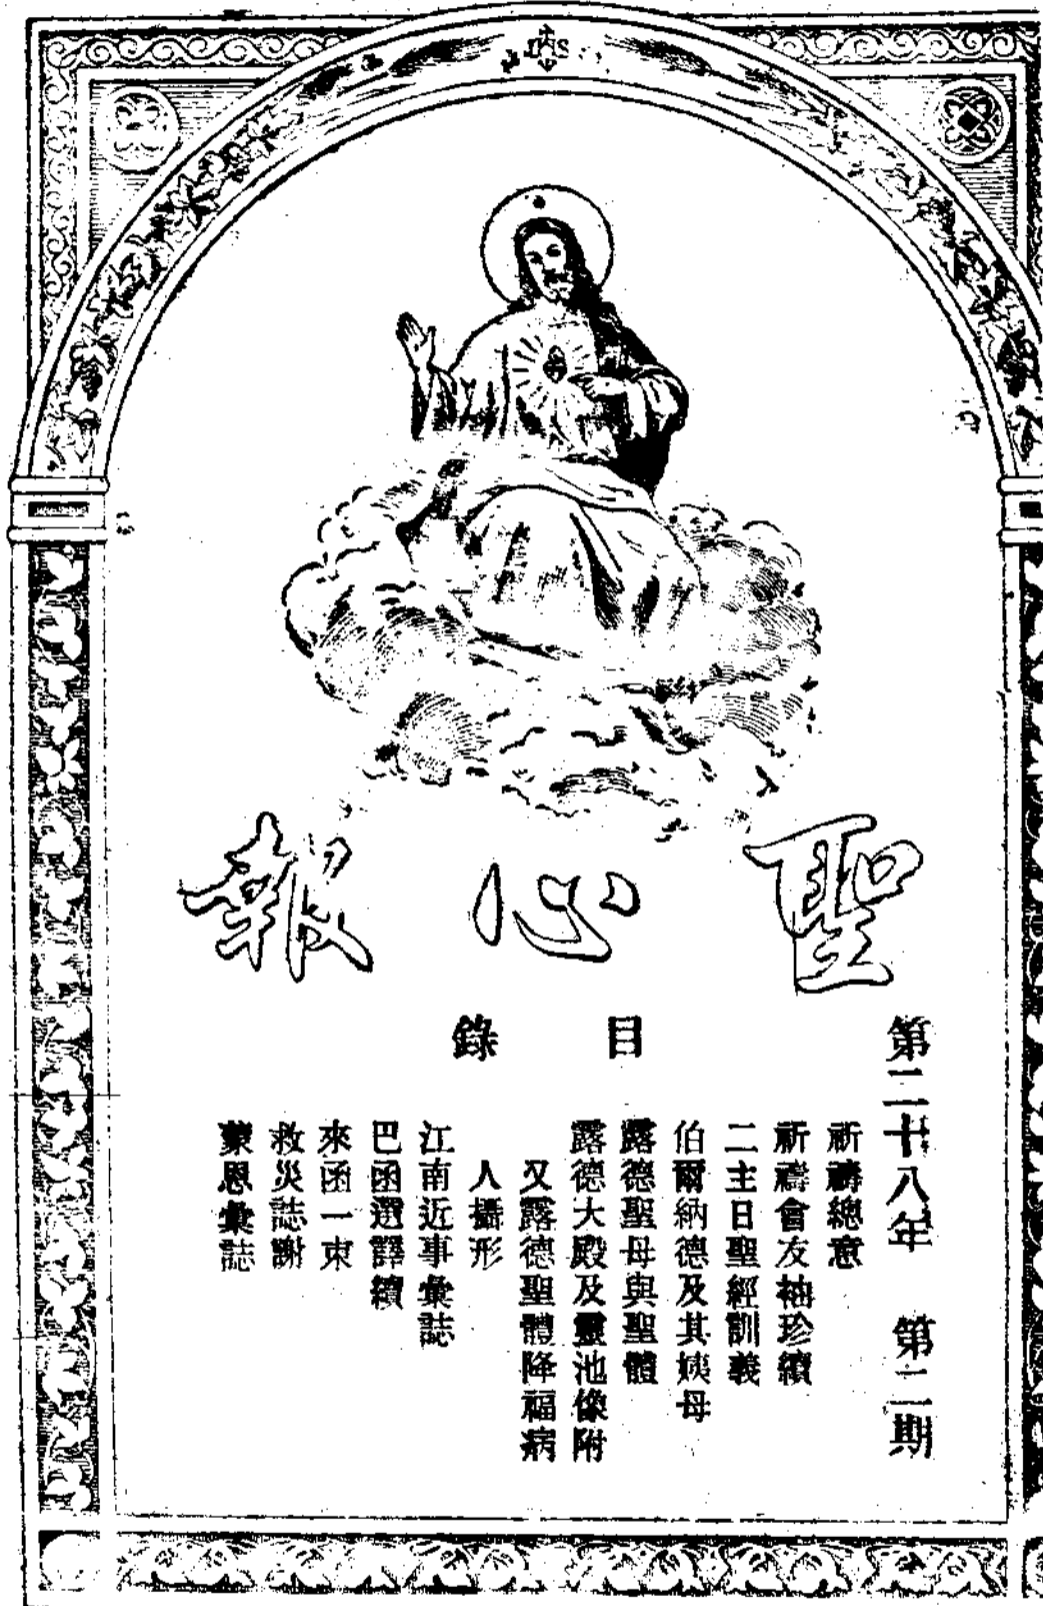 IHS
聖心報
第二十八年 第二期
目錄
祈禱總意
祈禱會友袖珍續
二主日聖經訓義
伯爾納德及其姨母
露德聖母與聖體
露德大殿及靈池像附
又露德聖體降福病
人攝形
江南近事彙誌
巴函選譯續
來函一束
救災誌謝
蒙恩彙誌